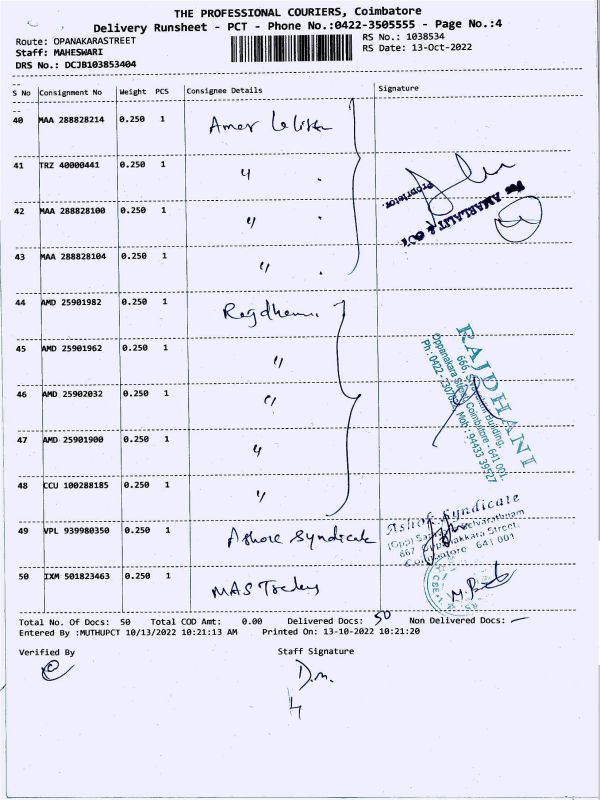 THE PROFESSIONAL COURIERS, Coimbatore
Delivery Runsheet - PCT - Phone No.:0422-3505555 - Page No.:4
Route: OPANAKARASTREET
RS No.: 1038534
Staff: MAHESWARI
RS Date: 13-Oct-2022
DRS No.: DCJB103853404
S No Consignment No Weight PCS Consignee Details Signature
40 MAA 288828214 0.250 1 Amar
41 TRZ 40000441 0.250 1 "
42 MAA 288828100 0.250 1 "
43 MAA 288828104 0.250 1 "
Proprietor.
For AMARLALIT &
44 AMD 25901982 0.250 1 Rajdhani
45 AMD 25901962 0.250 1 "
46 AMD 25902032 0.250 1 "
47 AMD 25901900 0.250 1 "
48 CCU 100288185 0.250 1 "
RAJDHANI
666, Building,
Oppanakara Street, Coimbatore - 641 001.
Ph : 0422- Mob : 94433 39527
49 VPL 939980350 0.250 1 Ashok Syndicate
Ashok Syndicate
(Opp)
667, Oppanakkara Street,
Coimbatore 641 001
50 IXM 501823463 0.250 1 MAS Traders
Total No. Of Docs: 50 Total COD Amt: 0.00 Delivered Docs: 50 Non Delivered Docs: —
Entered By :MUTHUPCT 10/13/2022 10:21:13 AM Printed On: 13-10-2022 10:21:20
Verified By Staff Signature